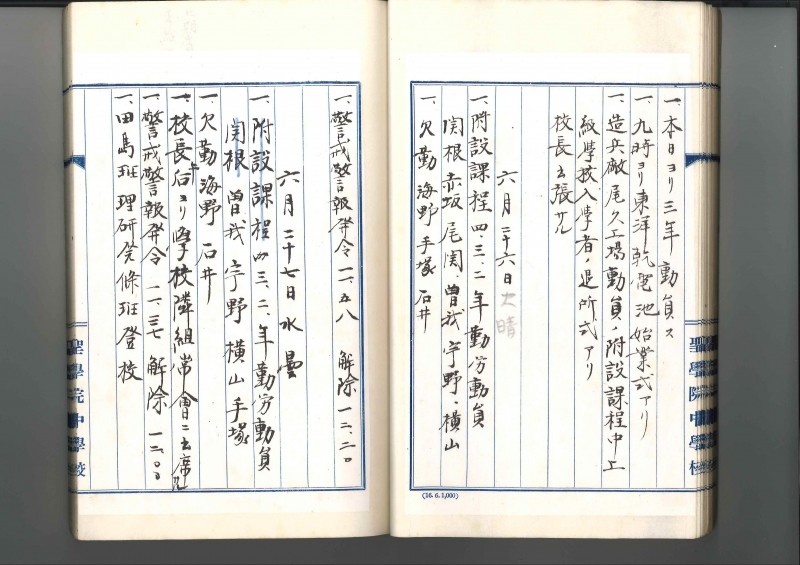 一、本日ヨリ三年動員ス
一、九時ヨリ東洋乾電池始業式アリ
一、造兵廠尾久工場動員ノ附設課程中上
級学校入学者ノ退所式アリ
校長出張サル
六月二十六日 火 晴
一、附設課程四、三、二年勤労動員
関根 赤坂 尾関、曽我 宇野、横山
一、欠勤 海野 手塚 石井
(16. 6. 1,000)
聖學院中學校
一、警戒警報発令 一一、五八 解除 一二、二〇
六月二十七日 水 曇
一、附設課程四、三、二、年勤労動員
関根 曽我 宇野 横山 手塚
一、欠勤 海野 石井
一、校長 后 ヨリ学校隣組常會ニ出席
一、警戒警報発令 一一、三七 解除 一二、〇〇
一、田島班理研発條班登校
聖學院中學校